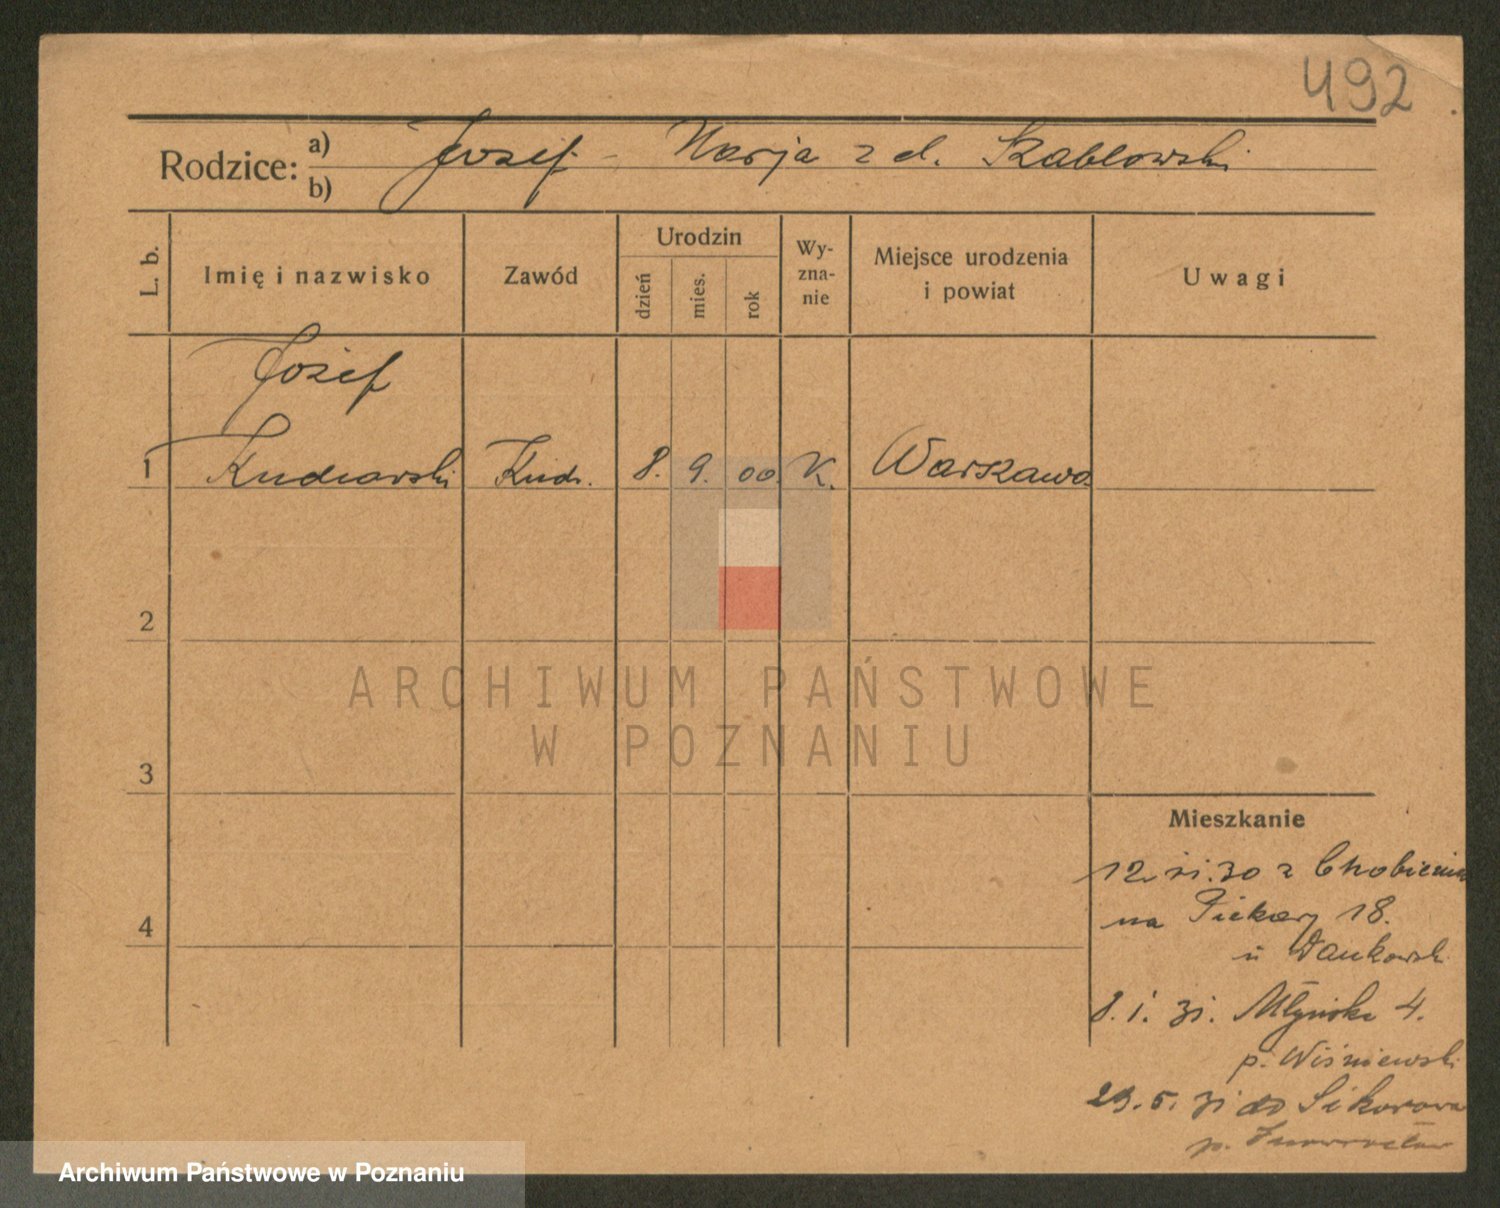 492
Rodzice: a) Jozef - Marja z d. Szablowski
b)
L. b. Imię i nazwisko Zawód Urodzin dzień mies. rok Wy-zna-nie Miejsce urodzenia i powiat Uwagi
Józef
1 8. 9. 00. K. Warszawa
2
ARCHIWUM PAŃSTWOWE
W POZNANIU
3
Mieszkanie
12. XI. 30 z
4 na Piekary 18.
u Dankowski
8. 1. 31. Młyńska 4.
p. Wiśniewski
29. 5. 31 do Sikorowa
p. Inowrocław
Archiwum Państwowe w Poznaniu